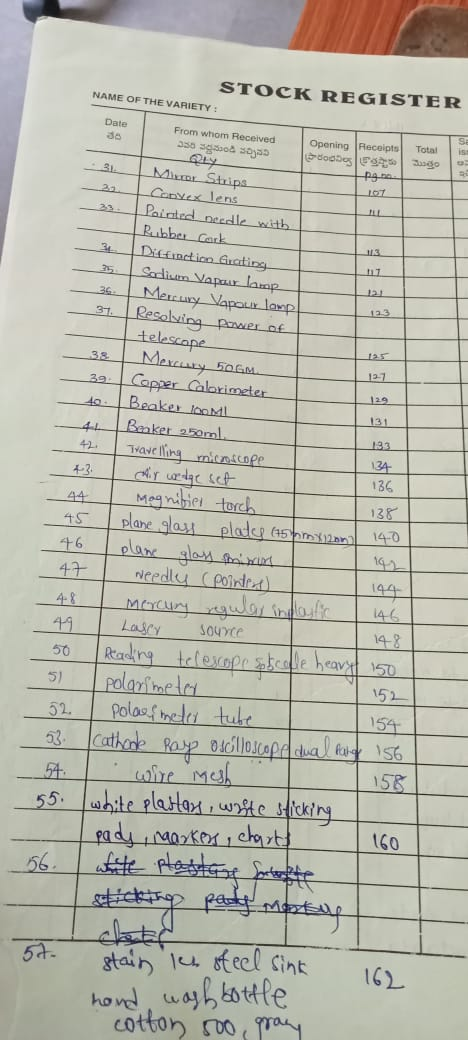 STOCK REGISTER
NAME OF THE VARIETY :
Date From whom Received Opening Receipts Total
తేది ఎవరి వద్దనుండి వచ్చినవి ప్రారంభనిల్వ మొత్తం
Qty Pg.no.
31. Mirror Strips 107
32. Convex lens 111
33. Pointed needle with
Rubber Cork 113
34. Diffraction Grating 117
35. Sodium Vapour lamp 121
36. Mercury Vapour lamp 123
37. Resolving power of
telescope 125
38 Mercury 50GM. 127
39. Copper Calorimeter 129
40. Beaker 100Ml 131
41. Beaker 250ml. 133
42. Travelling microscope 134
43. Air wedge set 136
44 Magnifier torch 138
45 plane glass plates (75mmx12mm) 140
46 plane glass 142
47 Needly (pointers) 144
48 Mercury regular 146
49 Laser source 148
50 Reading telescope heavy 150
51 polarimeter 152
52. polarimeter tube 154
53. Cathode Rays oscilloscope dual 156
54. wire mesh 158
55. white plasters, write sticking
pads, markers, charts 160
56. white
sticking pads
57. stain les steel sink 162
hand wash bottle
cotton 500,